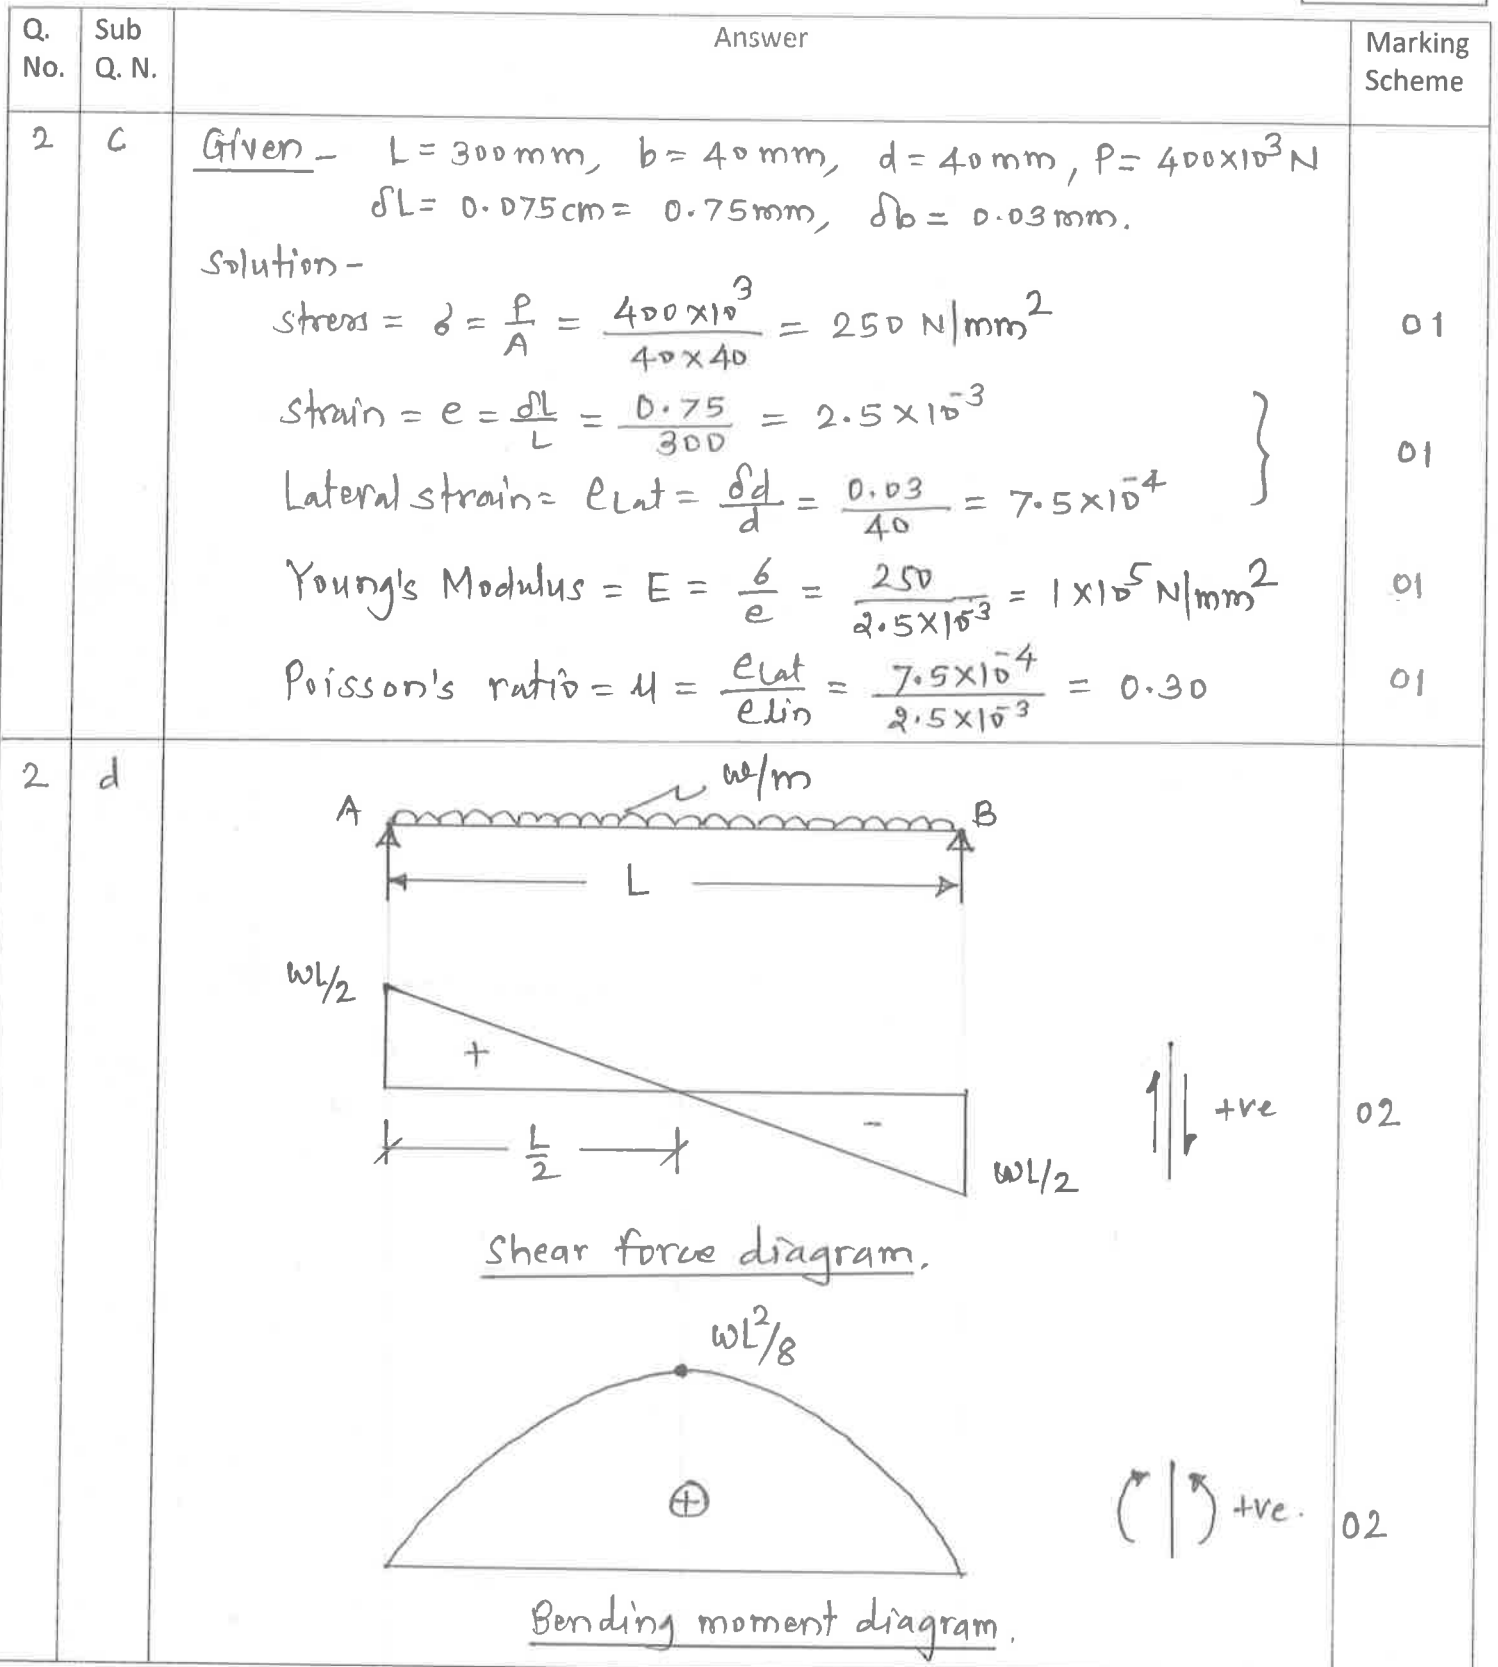 Q. No.
Sub Q. N.
Answer
Marking Scheme
2 C Given - L = 300 mm, b = 40 mm, d = 40 mm, P = 400×10³ N
δL = 0.075 cm = 0.75 mm, δb = 0.03 mm.
Solution -
stress = σ = P/A = 400×10³/40×40 = 250 N/mm² 01
strain = e = δL/L = 0.75/300 = 2.5×10⁻³
Lateral strain = eLat = δd/d = 0.03/40 = 7.5×10⁻⁴ } 01
Young's Modulus = E = σ/e = 250/2.5×10⁻³ = 1×10⁵ N/mm² 01
Poisson's ratio = μ = eLat/eLin = 7.5×10⁻⁴/2.5×10⁻³ = 0.30 01
2 d
w/m
A B
L
wL/2
+
-
+ve 02
L/2
wL/2
Shear force diagram.
wL²/8
+
+ve. 02
Bending moment diagram.